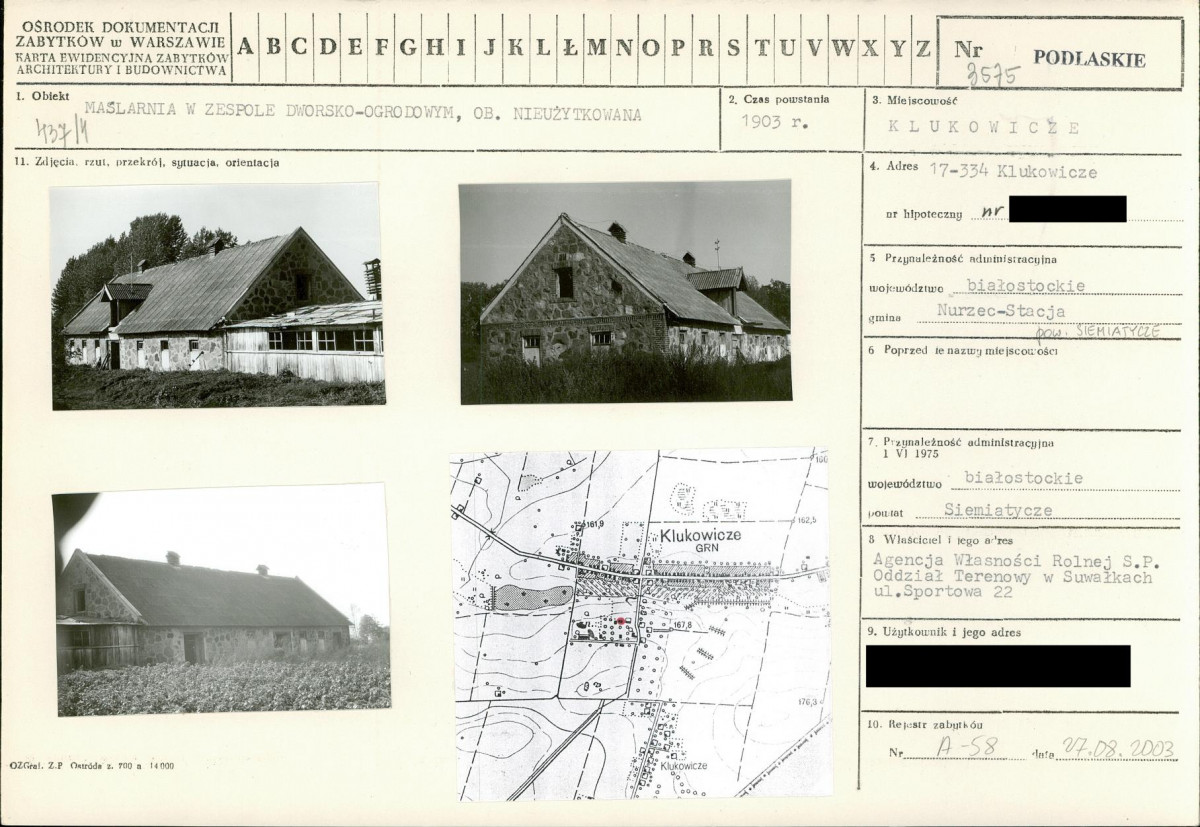 OŚRODEK DOKUMENTACJI
ZABYTKÓW w WARSZAWIE
KARTA EWIDENCYJNA ZABYTKÓW
ARCHITEKTURY I BUDOWNICTWA
A B C D E F G H I J K L Ł M N O P R S T U V W X Y Z
Nr 3575 PODLASKIE
1. Obiekt
MAŚLARNIA W ZESPOLE DWORSKO-OGRODOWYM, OB. NIEUŻYTKOWANA
437/4
2. Czas powstania
1903 r.
3. Miejscowość
KLUKOWICZE
4. Adres 17-334 Klukowicze
nr hipoteczny nr
5 Przynależność administracyjna
województwo białostockie
gmina Nurzec-Stacja
pow. SIEMIATYCZE
6 Poprzednie nazwy miejscowości
7. Przynależność administracyjna
1 VI 1975
województwo białostockie
powiat Siemiatycze
8 Właściciel i jego adres
Agencja Własności Rolnej S.P.
Oddział Terenowy w Suwałkach
ul.Sportowa 22
9. Użytkownik i jego adres
10. Rejestr zabytków
Nr A-58 data 27.08.2003
11. Zdjęcia, rzut, przekrój, sytuacja, orientacja
160
161,9
162,5
Klukowicze
GRN
167,8
176,3
Klukowicze
OZGraf. Z.P Ostróda z. 700 n 14000